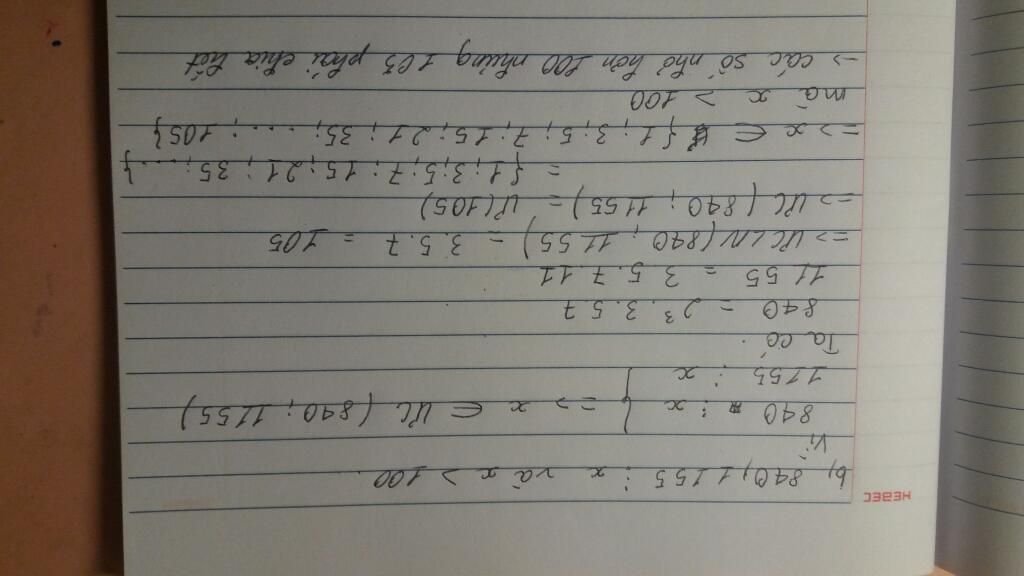 HEBEC
b, 840, 1155 ⋮ x và x > 100
Vì
840 ⋮ x } => x ∈ ƯC (840 ; 1155)
1155 ⋮ x
Ta có
840 = 2³. 3. 5. 7
1155 = 3. 5. 7. 11
=> ƯCLN (840 ; 1155) = 3. 5. 7 = 105
=> ƯC (840 ; 1155) = Ư(105)
= {1 ; 3 ; 5 ; 7 ; 15 ; 21 ; 35 ; ...}
=> x ∈ {1 ; 3 ; 5 ; 7 ; 15 ; 21 ; 35 ; ... ; 105}
mà x > 100
-> các số nhỏ hơn 100 nhưng 105 phải chia hết